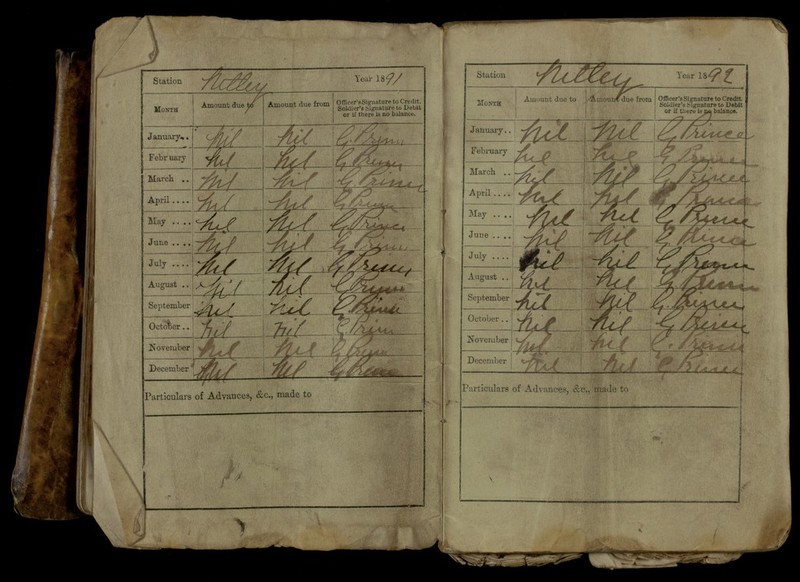 Station Netley Year 1891
Month Amount due to Amount due from Officer's Signature to Credit. Soldier's Signature to Debit or if there is no balance.
January.. Nil Nil G. Prince
February Nil Nil G. Prince
March .. Nil Nil G. Prince
April .... Nil Nil G. Prince
May .... Nil Nil G. Prince
June .... Nil Nil G. Prince
July .... Nil Nil G. Prince
August .. Nil Nil G. Prince
September Nil Nil G. Prince
October.. Nil Nil G. Prince
November Nil Nil G. Prince
December Nil Nil G. Prince
Particulars of Advances, &c., made to
Station Netley Year 1892
Month Amount due to Amount due from Officer's Signature to Credit. Soldier's Signature to Debit or if there is no balance.
January.. Nil Nil G. Prince
February Nil Nil G. Prince
March .. Nil Nil G. Prince
April .... Nil Nil G. Prince
May .... Nil Nil G. Prince
June .... Nil Nil G. Prince
July .... Nil Nil G. Prince
August .. Nil Nil G. Prince
September Nil Nil G. Prince
October.. Nil Nil G. Prince
November Nil Nil G. Prince
December Nil Nil G. Prince
Particulars of Advances, &c., made to